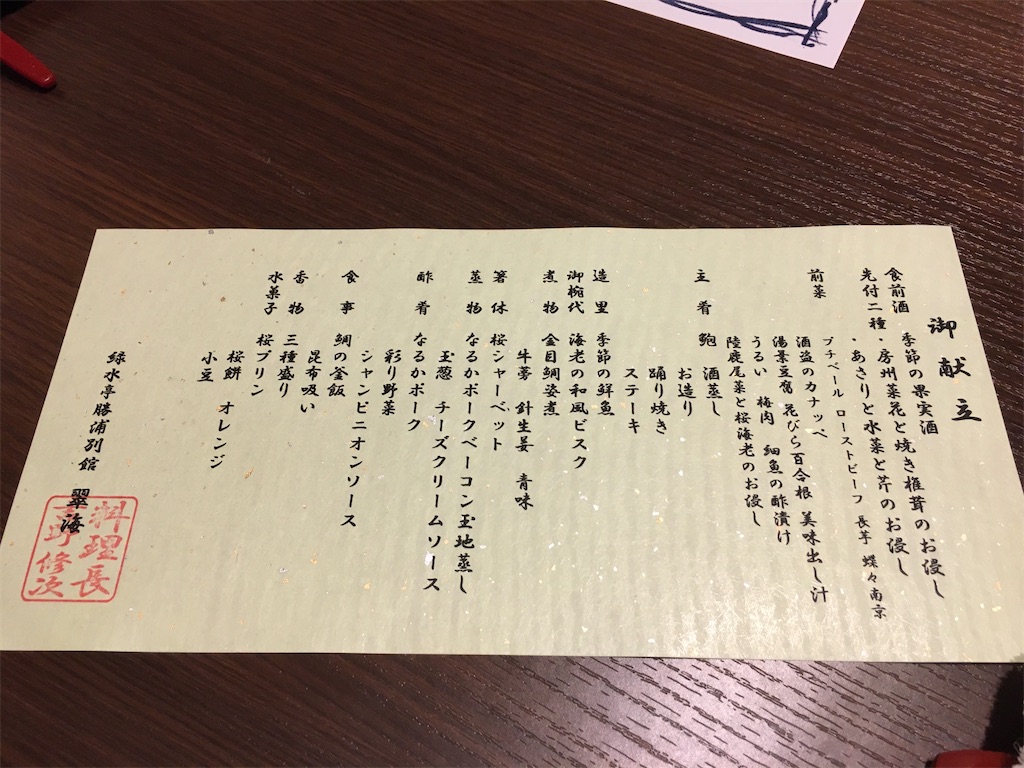 御献立
食前酒 季節の果実酒
先付二種 ・房州菜花と焼き椎茸のお浸し
・あさりと水菜と芹のお浸し
プチベール ローストビーフ 長芋 蝶々南京
前菜 酒盗のカナッペ
湯葉豆腐 花びら百合根 美味出し汁
うるい 梅肉 細魚の酢漬け
陸鹿尾菜と桜海老のお浸し
主肴 鮑 酒蒸し
お造り
踊り焼き
ステーキ
造里 季節の鮮魚
御椀代 海老の和風ビスク
煮物 金目鯛姿煮
牛蒡 針生姜 青味
箸休 桜シャーベット
蒸物 なるかポークベーコン玉地蒸し
玉葱 チーズクリームソース
酢肴 なるかポーク
彩り野菜
シャンピニオンソース
食事 鯛の釜飯
昆布吸い
香物 三種盛り
水菓子 桜プリン
桜餅 オレンジ
小豆
緑水亭勝浦別館 翠海
料理長
修次